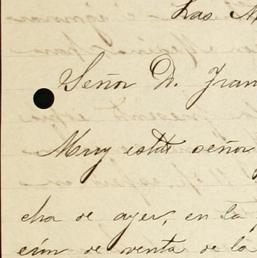 Las M
Señor D. Fran
Muy estdo señor
cha de ayer, en la
ción de venta de la